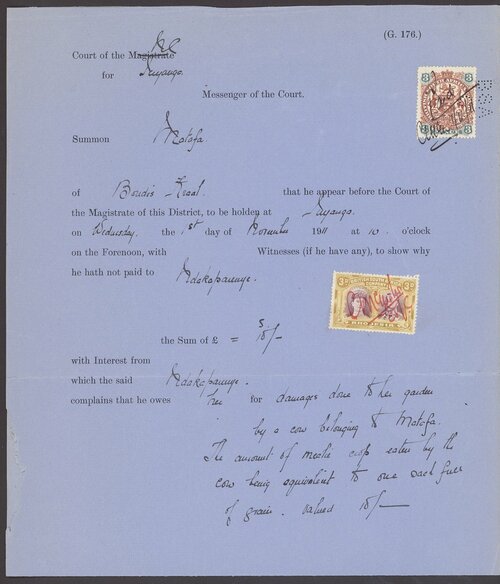 (G. 176.)
Court of the Magistrate
for Inyanga.
Messenger of the Court.
Summon Matafa.
of Kraal that he appear before the Court of
the Magistrate of this District, to be holden at Inyanga.
on Wednesday. the 1st day of November 1911 at 10. o'clock
on the Forenoon, with Witnesses (if he have any), to show why
he hath not paid to Ndakaparenye.
the Sum of £ =
with Interest from
which the said Ndakaparenye.
complains that he owes her for damages done to her garden
by a cow belonging to Matafa.
The amount of mealie crop eaten by the
cow being equivalent to one sack full
of grain. valued 10/-
RHODESIA